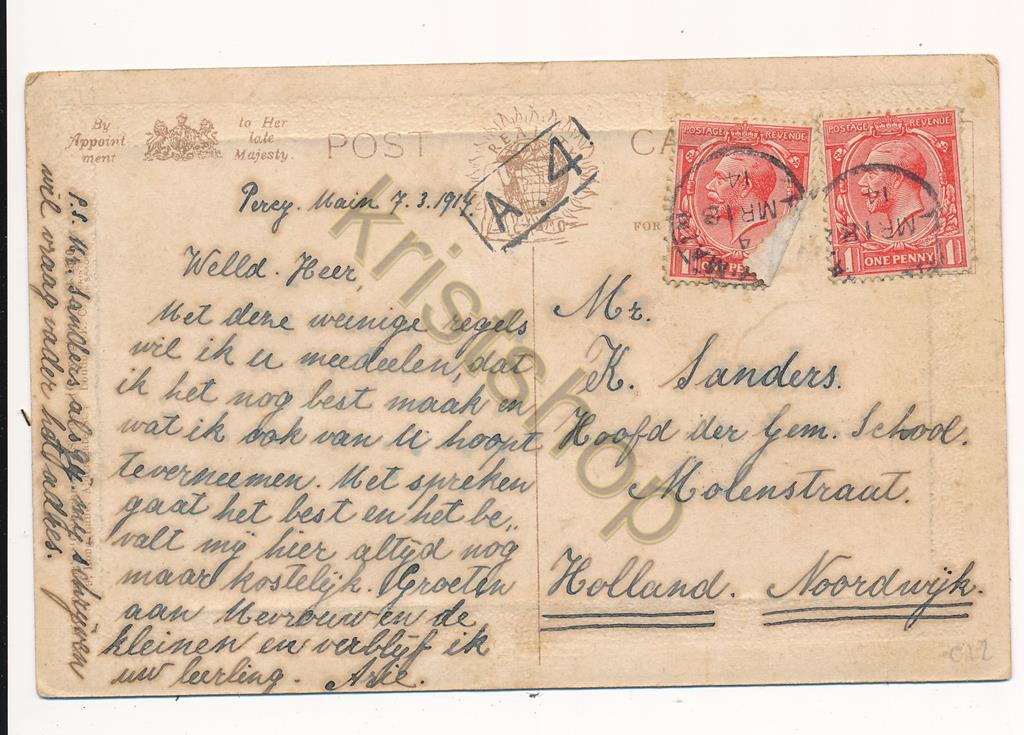 By
Appoint
ment
to Her
late
Majesty.
POST
CA
REA
FOR
A. 4
POSTAGE REVENUE
1 ONE PE
4
MR 18
14
POSTAGE REVENUE
1 ONE PENNY 1
MR 18
14
Percy. Main 7.3.1914.
Welld. Heer,
Met deze weinige regels
wil ik u meedeelen, dat
ik het nog best maak en
wat ik ook van U hoopt
teverneemen. Met spreken
gaat het best en het be„
valt mij hier altijd nog
maar kostelijk. Groeten
aan Mevrouw en de
kleinen en verblijf ik
uw leerling. Arie.
P.S. Mr. Sanders als gij mij schrijven
wil vraag vader het adres.
Mr.
K. Sanders.
Hoofd der Gem. School.
Molenstraat.
Holland. Noordwijk.
C12
kristshop